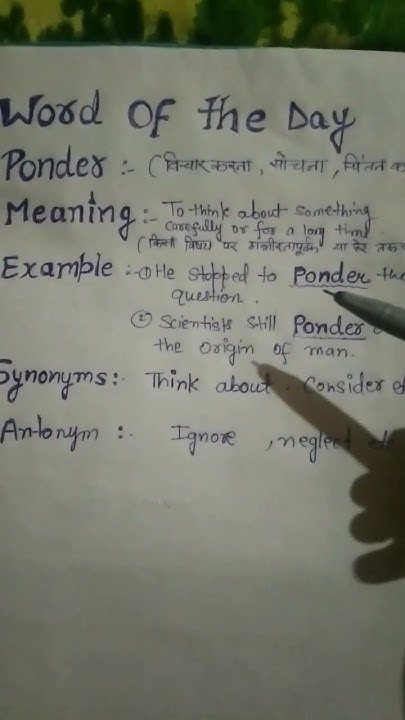 Word Of the Day
Ponder :- (विचार करना, सोचना, चिंतन
Meaning :- To think about something
carefully or for a long time
(किसी विषय पर गंभीरतापूर्वक या देर तक
Example :- ① He stopped to Ponder the
question.
② Scientists still Ponder
the origin of man.
Synonyms :- Think about. Consider
Antonym :- Ignore, neglect